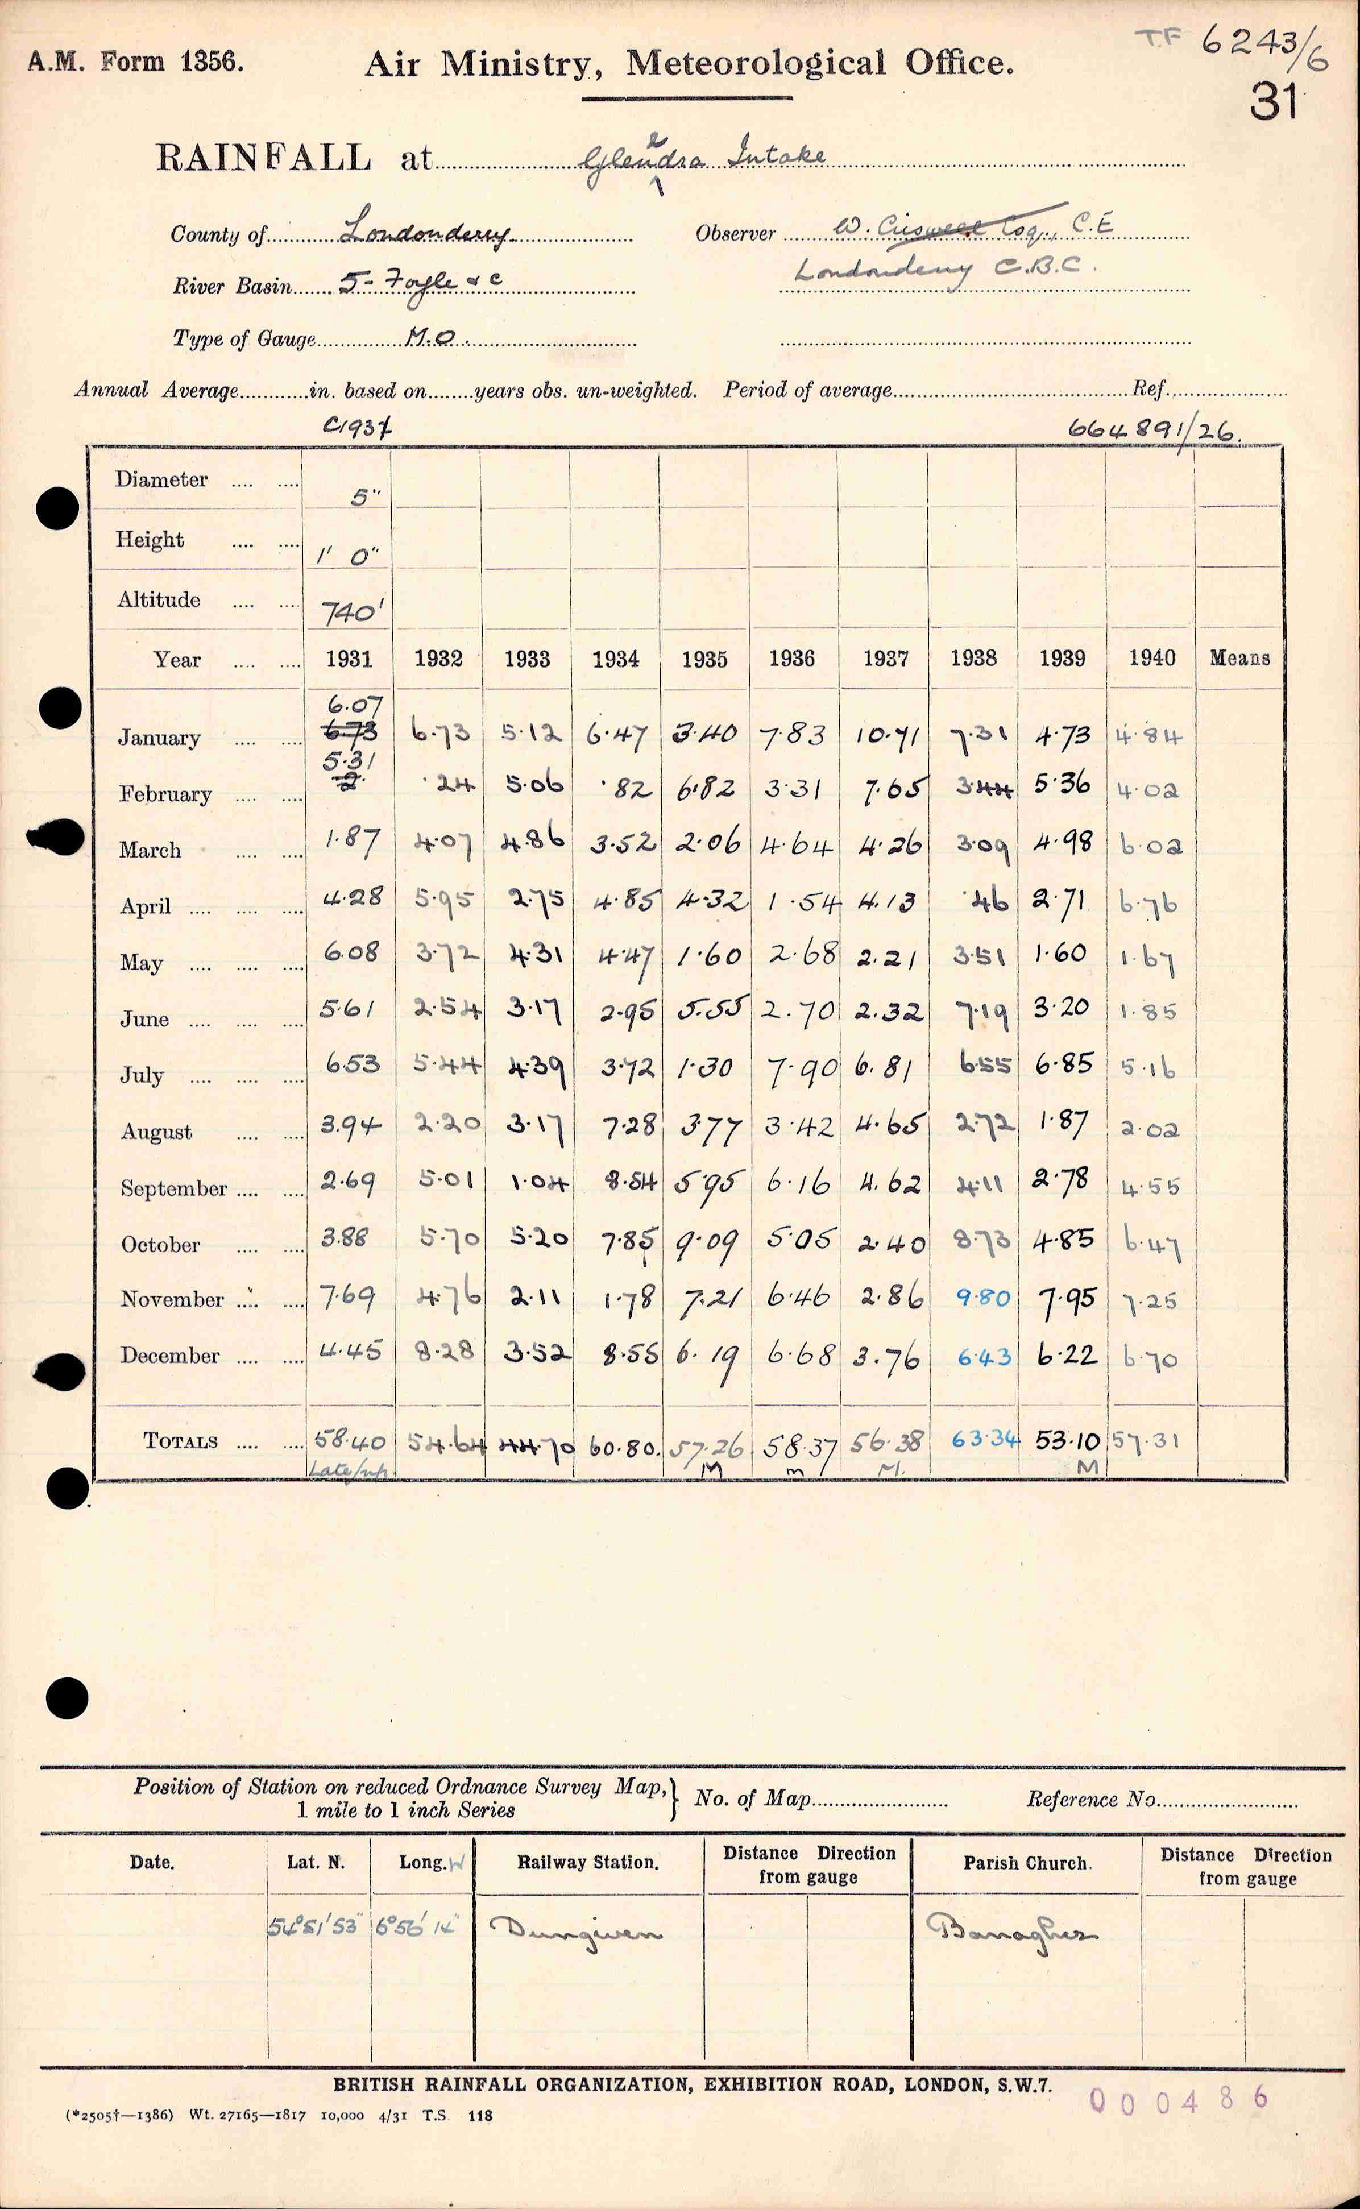 TF 6243/6
A.M. Form 1356. Air Ministry, Meteorological Office.
31
RAINFALL at Glendra Intake
County of Londonderry Observer W. Criswell Esq., C.E
River Basin 5- Foyle & c Londonderry C.B.C.
Type of Gauge M.O.
Annual Average in. based on years obs. un-weighted. Period of average Ref.
C1937 664891/26.
Diameter 5"
Height 1' 0"
Altitude 740'
Year 1931 1932 1933 1934 1935 1936 1937 1938 1939 1940 Means
6.07
January 6.73 6.73 5.12 6.47 3.40 7.83 10.71 7.31 4.73 4.84
5.31
February 2. .24 5.06 .82 6.82 3.31 7.65 3.44 5.36 4.02
March 1.87 4.07 4.86 3.52 2.06 4.64 4.26 3.09 4.98 6.02
April 4.28 5.95 2.75 4.85 4.32 1.54 4.13 .46 2.71 6.76
May 6.08 3.72 4.31 4.47 1.60 2.68 2.21 3.51 1.60 1.67
June 5.61 2.54 3.17 2.95 5.55 2.70 2.32 7.19 3.20 1.85
July 6.53 5.44 4.39 3.72 1.30 7.90 6.81 6.55 6.85 5.16
August 3.94 2.20 3.17 7.28 3.77 3.42 4.65 2.72 1.87 2.02
September 2.69 5.01 1.04 8.54 5.95 6.16 4.62 4.11 2.78 4.55
October 3.88 5.70 5.20 7.85 9.09 5.05 2.40 8.73 4.85 6.47
November 7.69 4.76 2.11 1.78 7.21 6.46 2.86 9.80 7.95 7.25
December 4.45 8.28 3.52 8.55 6.19 6.68 3.76 6.43 6.22 6.70
TOTALS 58.40 54.64 44.70 60.80. 57.26 58.37 56.38 63.34 53.10 57.31
M m M. M
Position of Station on reduced Ordnance Survey Map, 1 mile to 1 inch Series } No. of Map Reference No.
Date. Lat. N. Long. W Railway Station. Distance Direction from gauge Parish Church. Distance Direction from gauge
54° 51' 53" 6° 56' 14" Dungiven Banagher
BRITISH RAINFALL ORGANIZATION, EXHIBITION ROAD, LONDON, S.W.7.
000486
(*2505†—1386) Wt. 27165—1817 10,000 4/31 T.S. 118